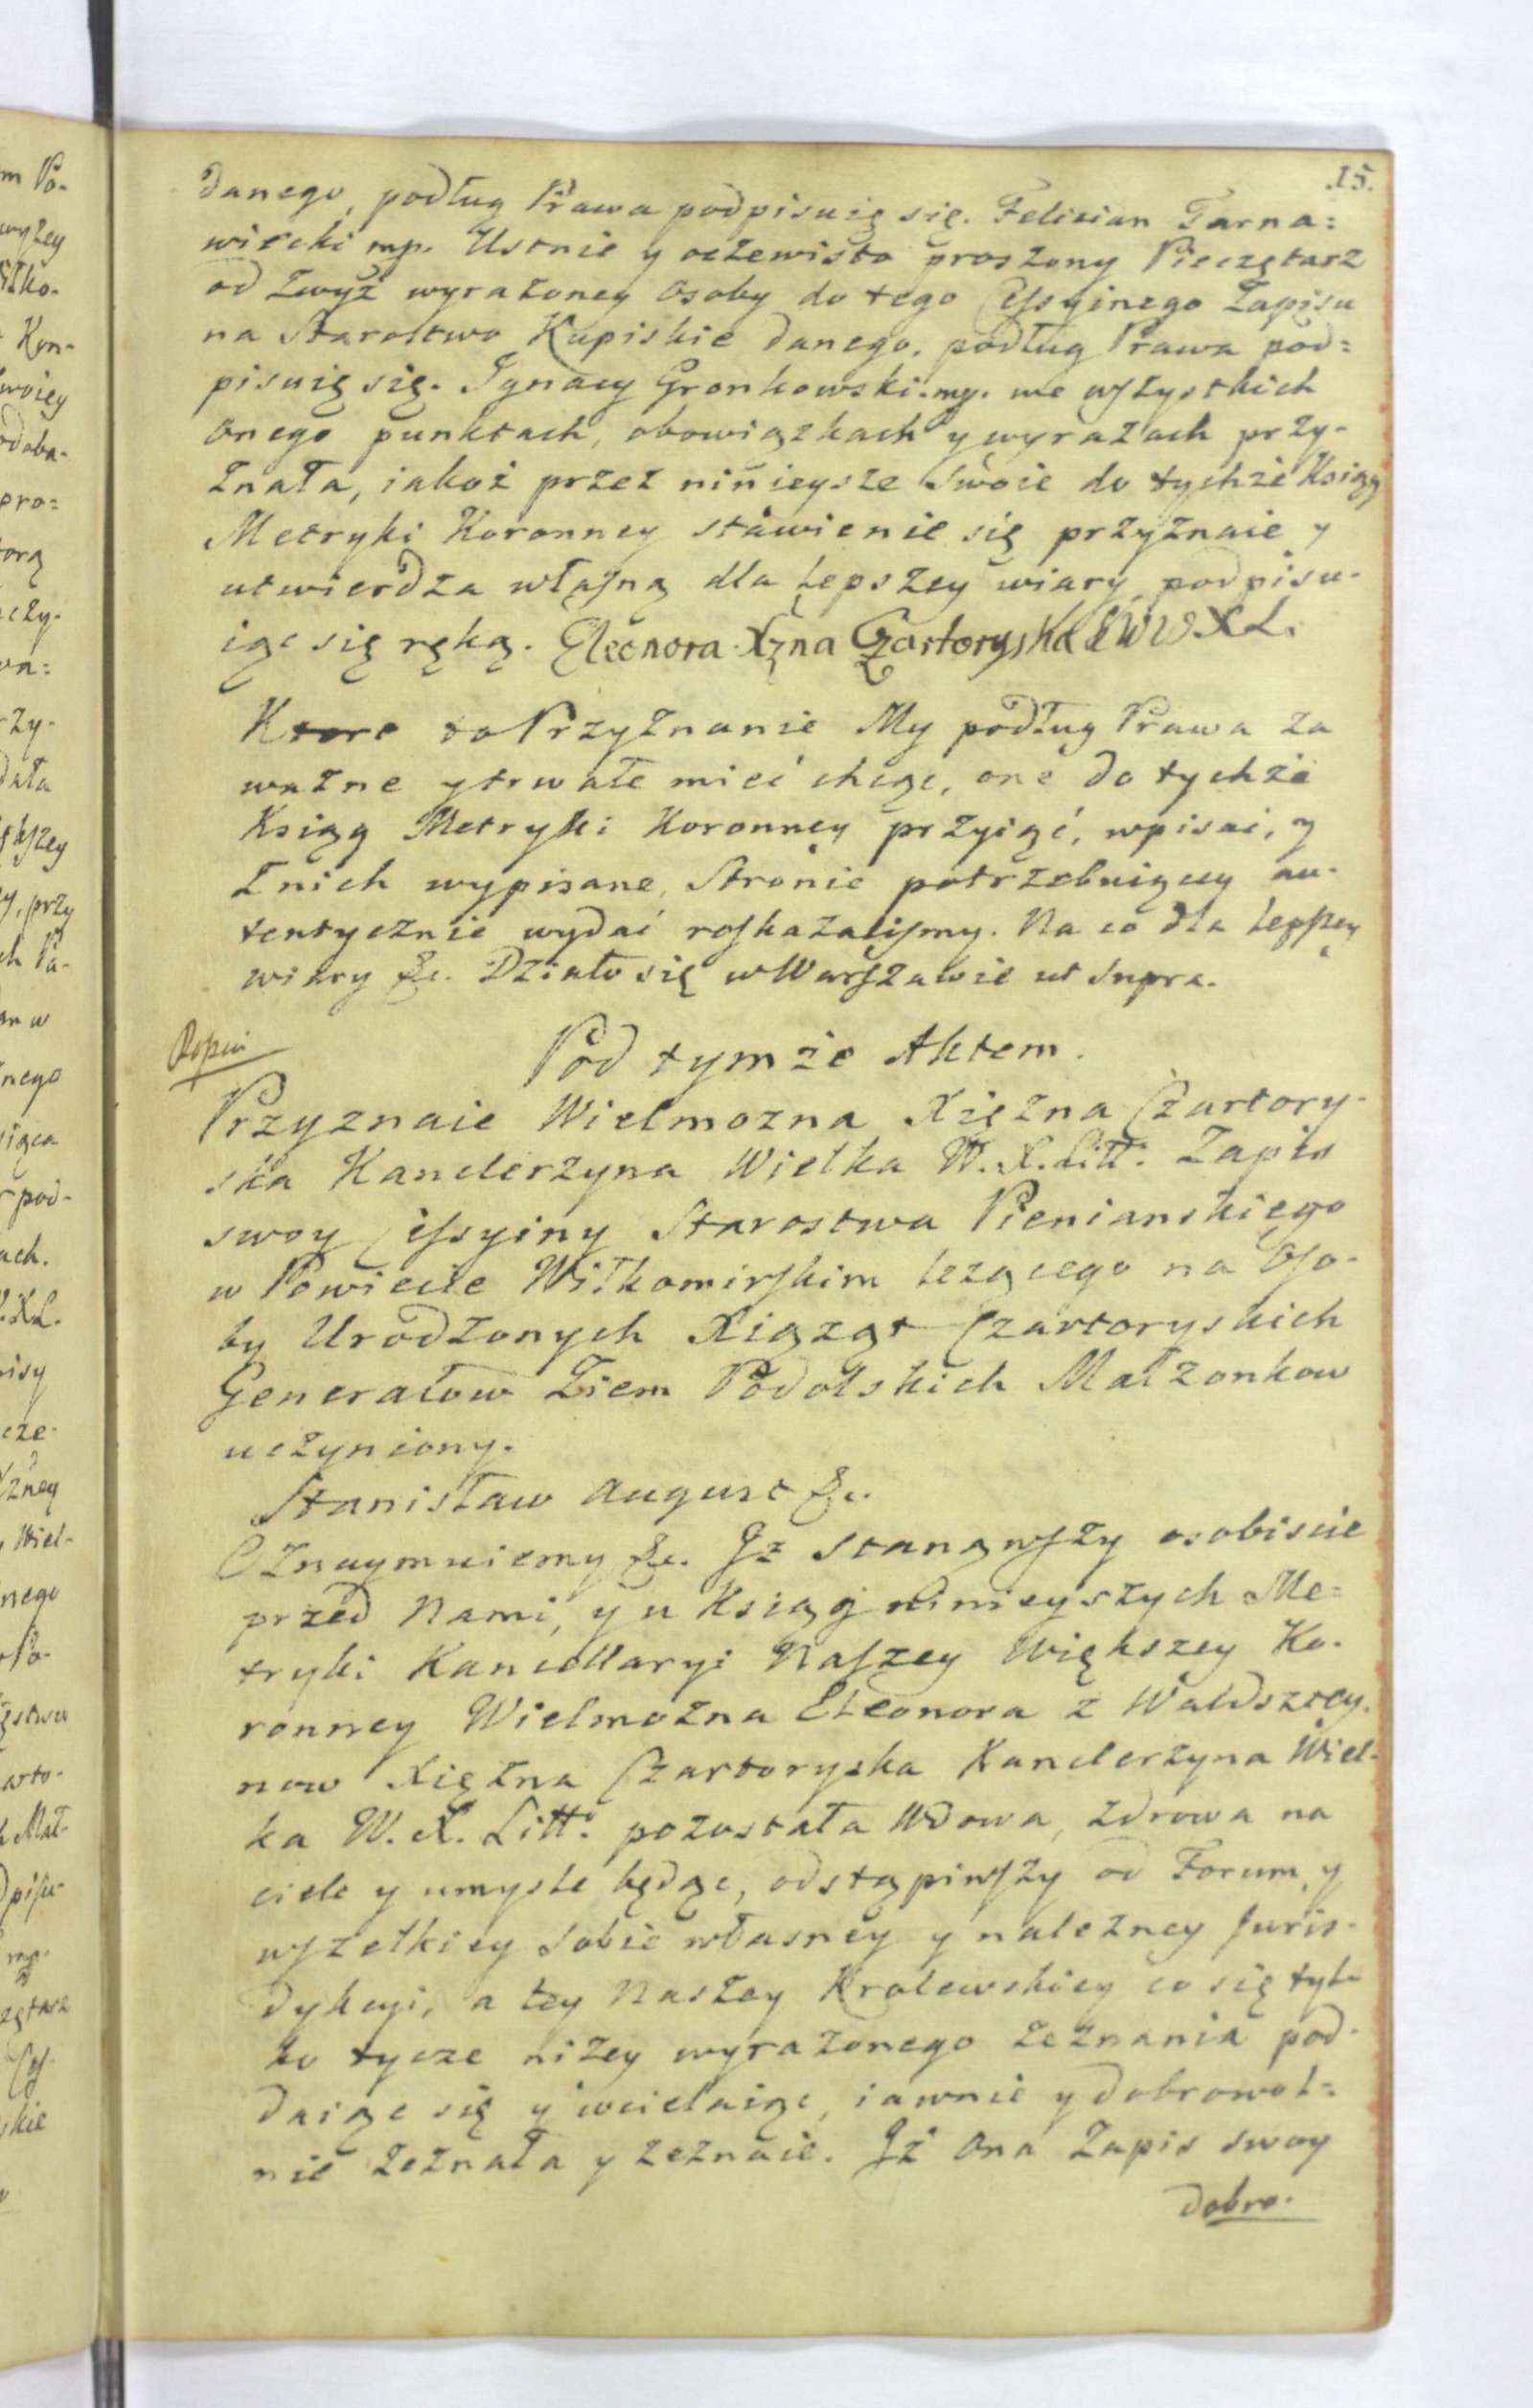 .15.
danego, podług Prawa podpisuię się. Felician Tarna=
wiecki mp. Ustnie y oczewisto proszony Pieczętarz
od zwyż wyrażoney Osoby do tego Cessyinego Zapisu
na Starostwo Kupiskie danego, podług Prawa pod=
pisuię się. Ignacy Gronkowski. mp. we wszystkich
onego punktach, obowiązkach y wyrazach przy-
znała, iakoż przez ninieysze swoie do tychże Ksiąg
Metryki Koronney stawienie się przyznaie y
utwierdza własną dla lepszey wiary podpisu-
iąc się ręką. Eleonora Xzna Czartoryska K W W X L.
Ktore to Przyznanie My podług Prawa za
ważne y trwałe mieć chcąc, one do tychże
Ksiąg Metryki Koronney przyiąć, wpisać, y
z nich wypisane, Stronie potrzebuiącey au-
tentycznie wydać roskazalismy. Na co dla lepszey
wiary &c. Działo się w Warszawie ut supra.
Pod tymże Aktem.
Przyznaie Wielmozna Xięzna Czartory-
ska Kanclerzyna Wielka W. X. Litt: Zapis
swoy Cessyiny Starostwa Pienianskiego
w Powiecie Wiłkomirskim leżącego na Oso-
by Urodzonych Xiążąt Czartoryskich
Generałow Ziem Podolskich Małzonkow
uczyniony.
Stanisław August &c.
Oznaymuiemy &c. Iż stanąwszy osobiscie
przed Nami, y u Ksiąg ninieyszych Me=
tryki Kancellaryi Naszey Większey Ko-
ronney Wielmożna Eleonora z Waldsztey-
now Xiężna Czartoryska Kanclerzyna Wiel-
ka W. X. Litt: pozostała Wdowa, zdrowa na
ciele y umysle będąc, odstąpiwszy od Forum y
wszelkiey sobie własney y należney Juris-
dykcyi, a tey Naszey Krolewskiey co się tyl-
ko tycze niżey wyrażonego zeznania pod-
daiąc się y wcielaiąc, iawnie y dobrowol=
nie zeznała y zeznaie. Iż Ona Zapis swoy
dobro.